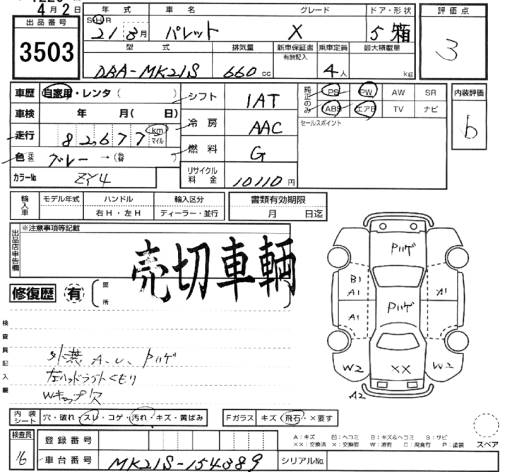 4月2日
出品番号
3503
年式 車名 グレード ドア・形状
21 8月 パレット X 5 箱
型式 排気量 新車保証書 乗車定員 最大積載量
有(別記載)
DBA-MK21S 660cc 4人 kg
評価点
3
車歴 自家用・レンタ( )
車検 年 月( 日)
走行 82,677 km マイル
色 グレー →(替 )
カラーNo ZY4
シフト 1AT
冷房 AAC
燃料 G
リサイクル料金 10110円
純正のみ PS PW AW SR
ABS エアB TV ナビ
セールスポイント
内装評価
b
輸入車 モデル年式 ハンドル 輸入区分
右H・左H ディーラー・並行
書類有効期限
月 日迄
出品店申告欄
※注意事項等記載
売切車輌
修復歴 有 箇所
検査員記入欄
外装 A.U. Pハゲ
左ヘッドライトくもり
Wキャップ欠
Pハゲ
B1
A1
A1
A1
Pハゲ
W2
XX
W2
A2
スペア
内装シート 穴・破れ・スレ・コゲ・汚れ・キズ・黄ばみ
Fガラス キズ・飛石・×要す
A：キズ B：キズ&ヘコミ S：サビ
XX：交換済 X：要交換 W：波有 C：腐食有 P：塗装
検査員 16
登録番号
車台番号 MK21S-154389
シリアルNo.